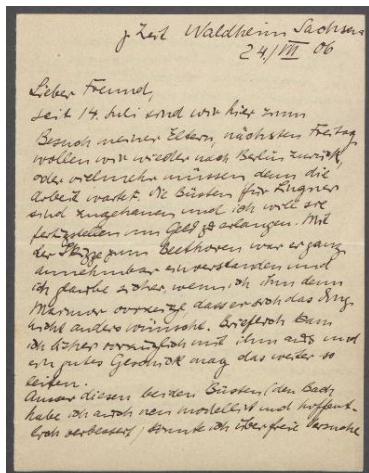 z Zeit Waldheim Sachsen
24./VII 06
Lieber Freund,
seit 14. Juli sind wir hier zum
Besuch meiner Eltern, nächsten Freitag
wollen wir wieder nach Berlin zurück,
oder vielmehr müssen denn die
Arbeit wartet. Die Büsten für Lingner
sind zugehauen und ich will sie
fertigstellen um Geld zu erlangen. Mit
der Skizze zum Beethoven war er ganz
annehmbar einverstanden und
ich glaube sicher, wenn ich ihm den
Marmor vorzeige, dass er sich das Ding
nicht anders wünsche. Brieflich kam
ich bisher vorzüglich mit ihm aus und
ein gutes Geschick mag das weiter so
leiten.
Ausser diesen beiden Büsten (den Bach
habe ich auch neu modelliert und hoffent-
lich verbessert) konnte ich über freie Versuche